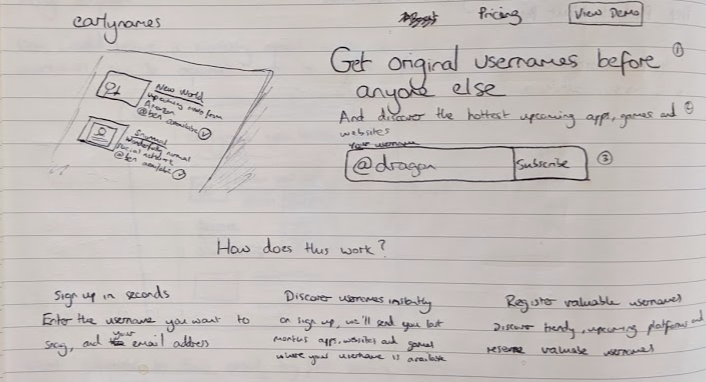 earlynames
Pricing
View Demo
Get original usernames before
anyone else
①
And discover the hottest upcoming apps, games and
websites
②
Your username
@dragon
Subscribe
③
New World
upcoming mmo from
Amazon
@ben available
Wonderfully normal
social network
@ben
available
How does this work?
Sign up in seconds
Enter the username you want to
snag, and your email address
Discover usernames instantly
on sign up, we'll send you last
months apps, websites and games
where your username is available
Register valuable usernames
Discover trendy, upcoming platforms and
reserve valuable usernames